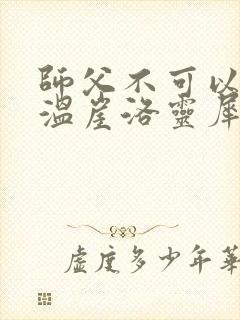 師父不可以
溫崖洛靈犀
虛度多少年華